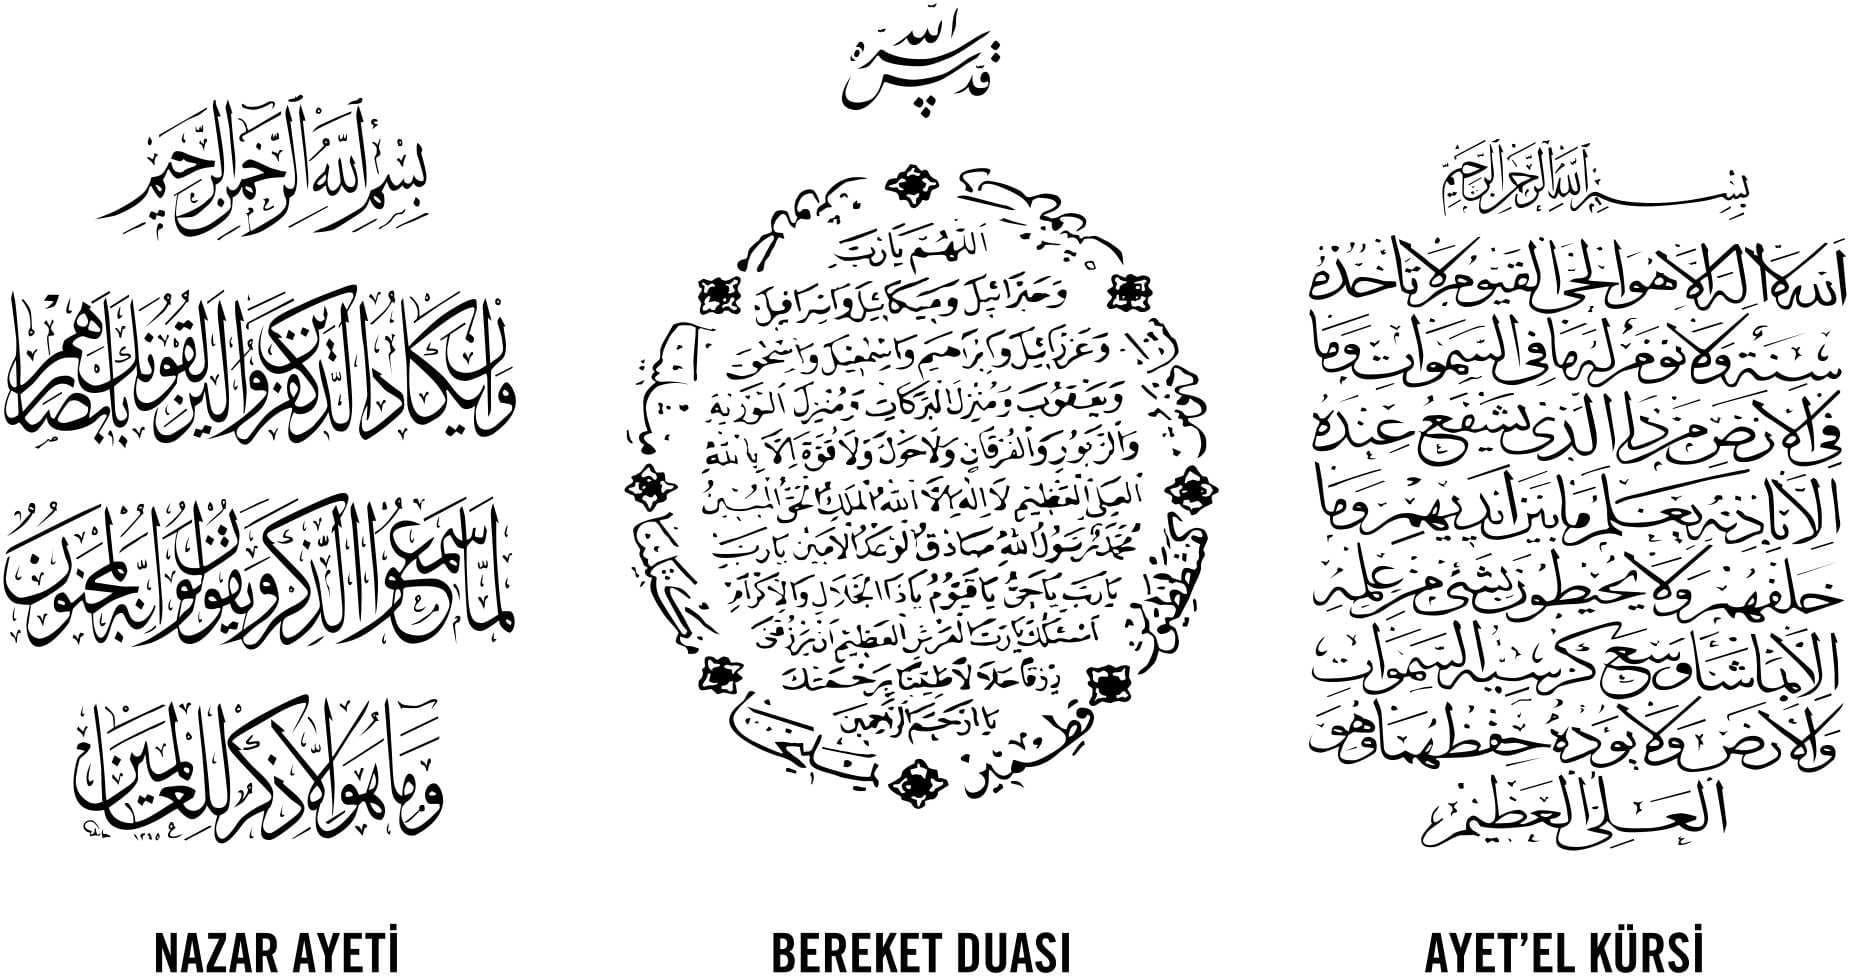 بِسْمِ اللهِ الرَّحْمٰنِ الرَّحِيمِ
وَإِنْ يَكَادُ الَّذِينَ كَفَرُوا لَيُزْلِقُونَكَ بِأَبْصَارِهِمْ
لَمَّا سَمِعُوا الذِّكْرَ وَيَقُولُونَ إِنَّهُ لَمَجْنُونٌ
وَمَا هُوَ إِلَّا ذِكْرٌ لِلْعَالَمِينَ
١٣٤٥
NAZAR AYETİ
قدس الله سره
اللهم يارب
وجبرائيل وميكائيل واسرافيل
وعزرائيل وابراهيم واسمعيل واسحق
ويعقوب ومنزل البركات ومنزل التورية
والزبور والفرقان ولا حول ولا قوة الا بالله
العلى العظيم لا اله الا الله الملك الحق المبين
محمد رسول الله صادق الوعد الامين يارب
يارب ياحى ياقيوم ياذا الجلال والاكرام
اسئلك يارب العرش العظيم ان ترزقنى
رزقا حلالا طيبا برحمتك
يا ارحم الراحمين
BEREKET DUASI
بسم الله الرحمن الرحيم
الله لا اله الا هو الحى القيوم لا تأخذه
سنة ولا نوم له ما فى السموات وما
فى الارض من ذا الذى يشفع عنده
الا باذنه يعلم ما بين ايديهم وما
خلفهم ولا يحيطون بشئ من علمه
الا بما شاء وسع كرسيه السموات
والارض ولا يؤده حفظهما وهو
العلى العظيم
AYET'EL KÜRSİ